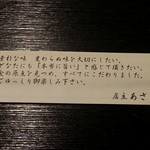 素朴な味 変わらぬ味を大切にしたい。
どなたにも「本当に旨い」と感じて頂きたい。
食の原点を見つめ、すべてにこだわりました。
ごゆっくり御楽しみ下さい。
店主 あさ